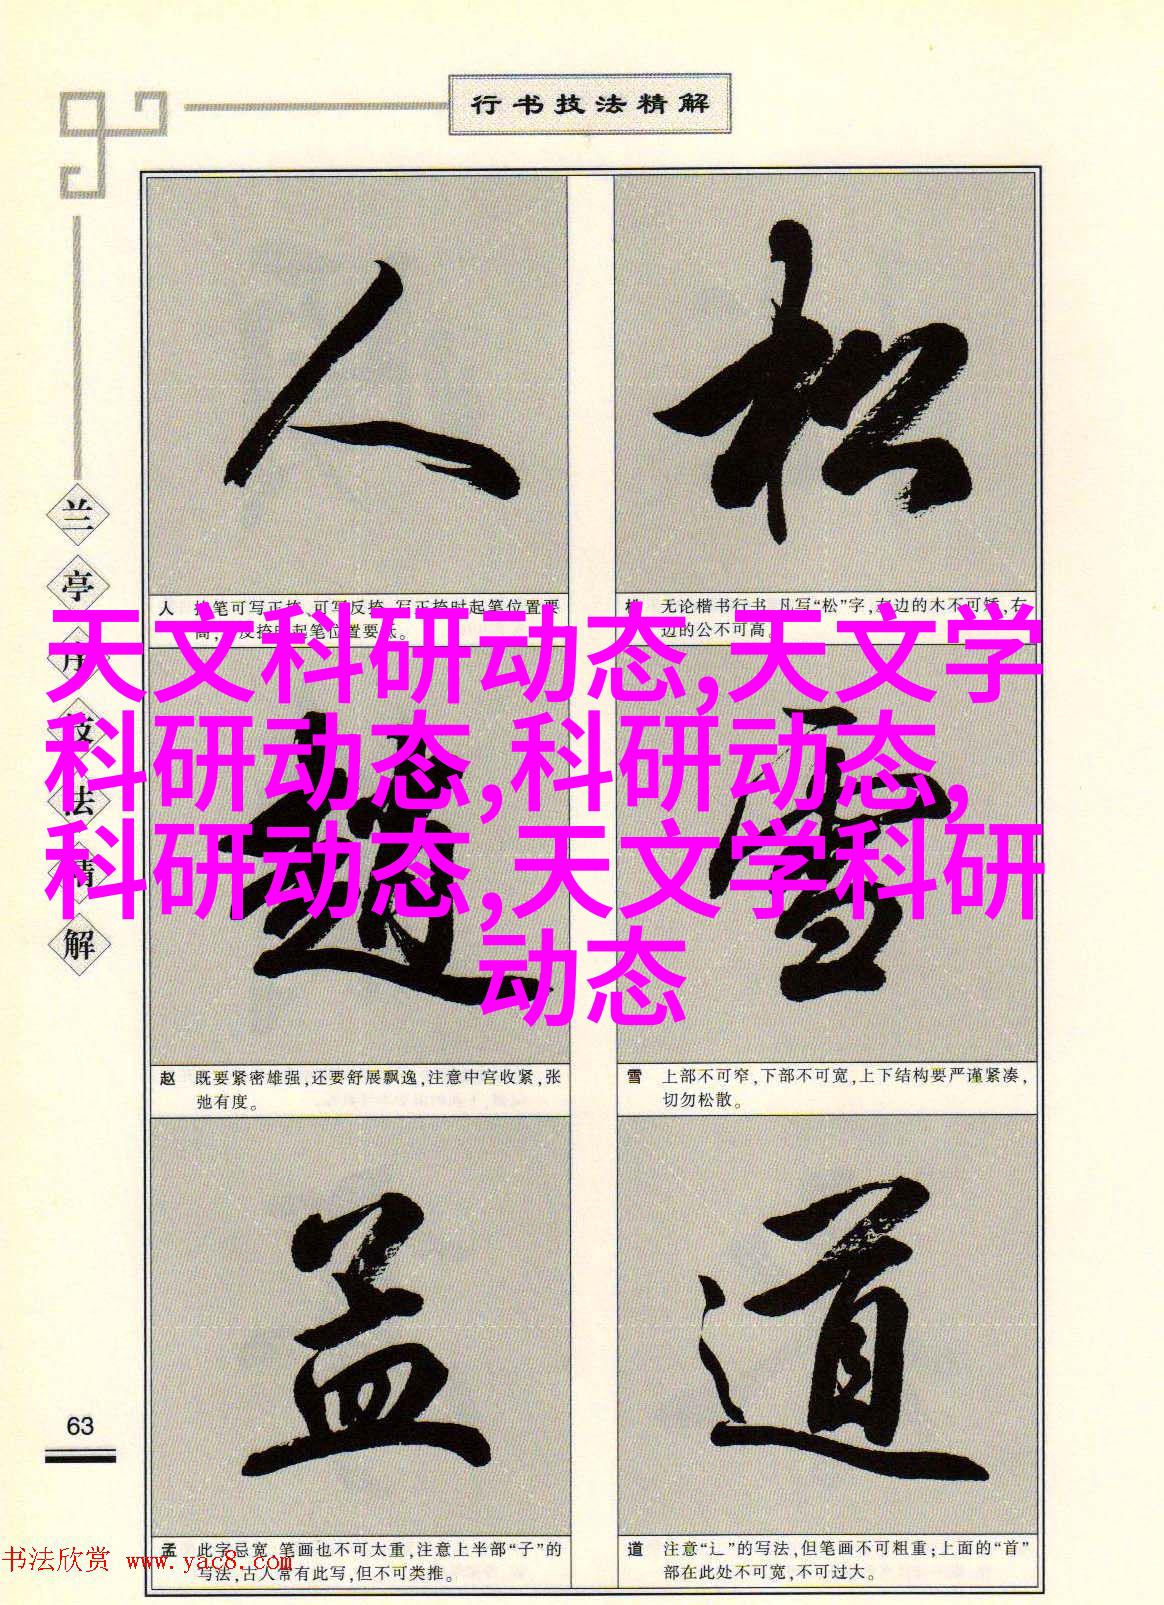 行书技法精解
兰亭序技法精解
人
松
人 捺笔可写正捺、可写反捺,写正捺时起笔位置要
高,反捺时起笔位置要低。
松 无论楷书行书,凡写“松”字,左边的木不可矮,右
边的公不可高。
天文科研动态,天文学
科研动态,科研动态,
科研动态,天文学科研
动态
赵
雪
赵 既要紧密雄强,还要舒展飘逸,注意中宫收紧,张
弛有度。
雪 上部不可窄,下部不可宽,上下结构要严谨紧凑,
切勿松散。
孟
道
孟 此字忌宽,笔画也不可太重,注意上半部“子”的
写法,古人常有此写,但不可类推。
道 注意“辶”的写法,但笔画不可粗重;上面的“首”
部在此处不可宽,不可过大。
63
书法欣赏 www.yac8.com